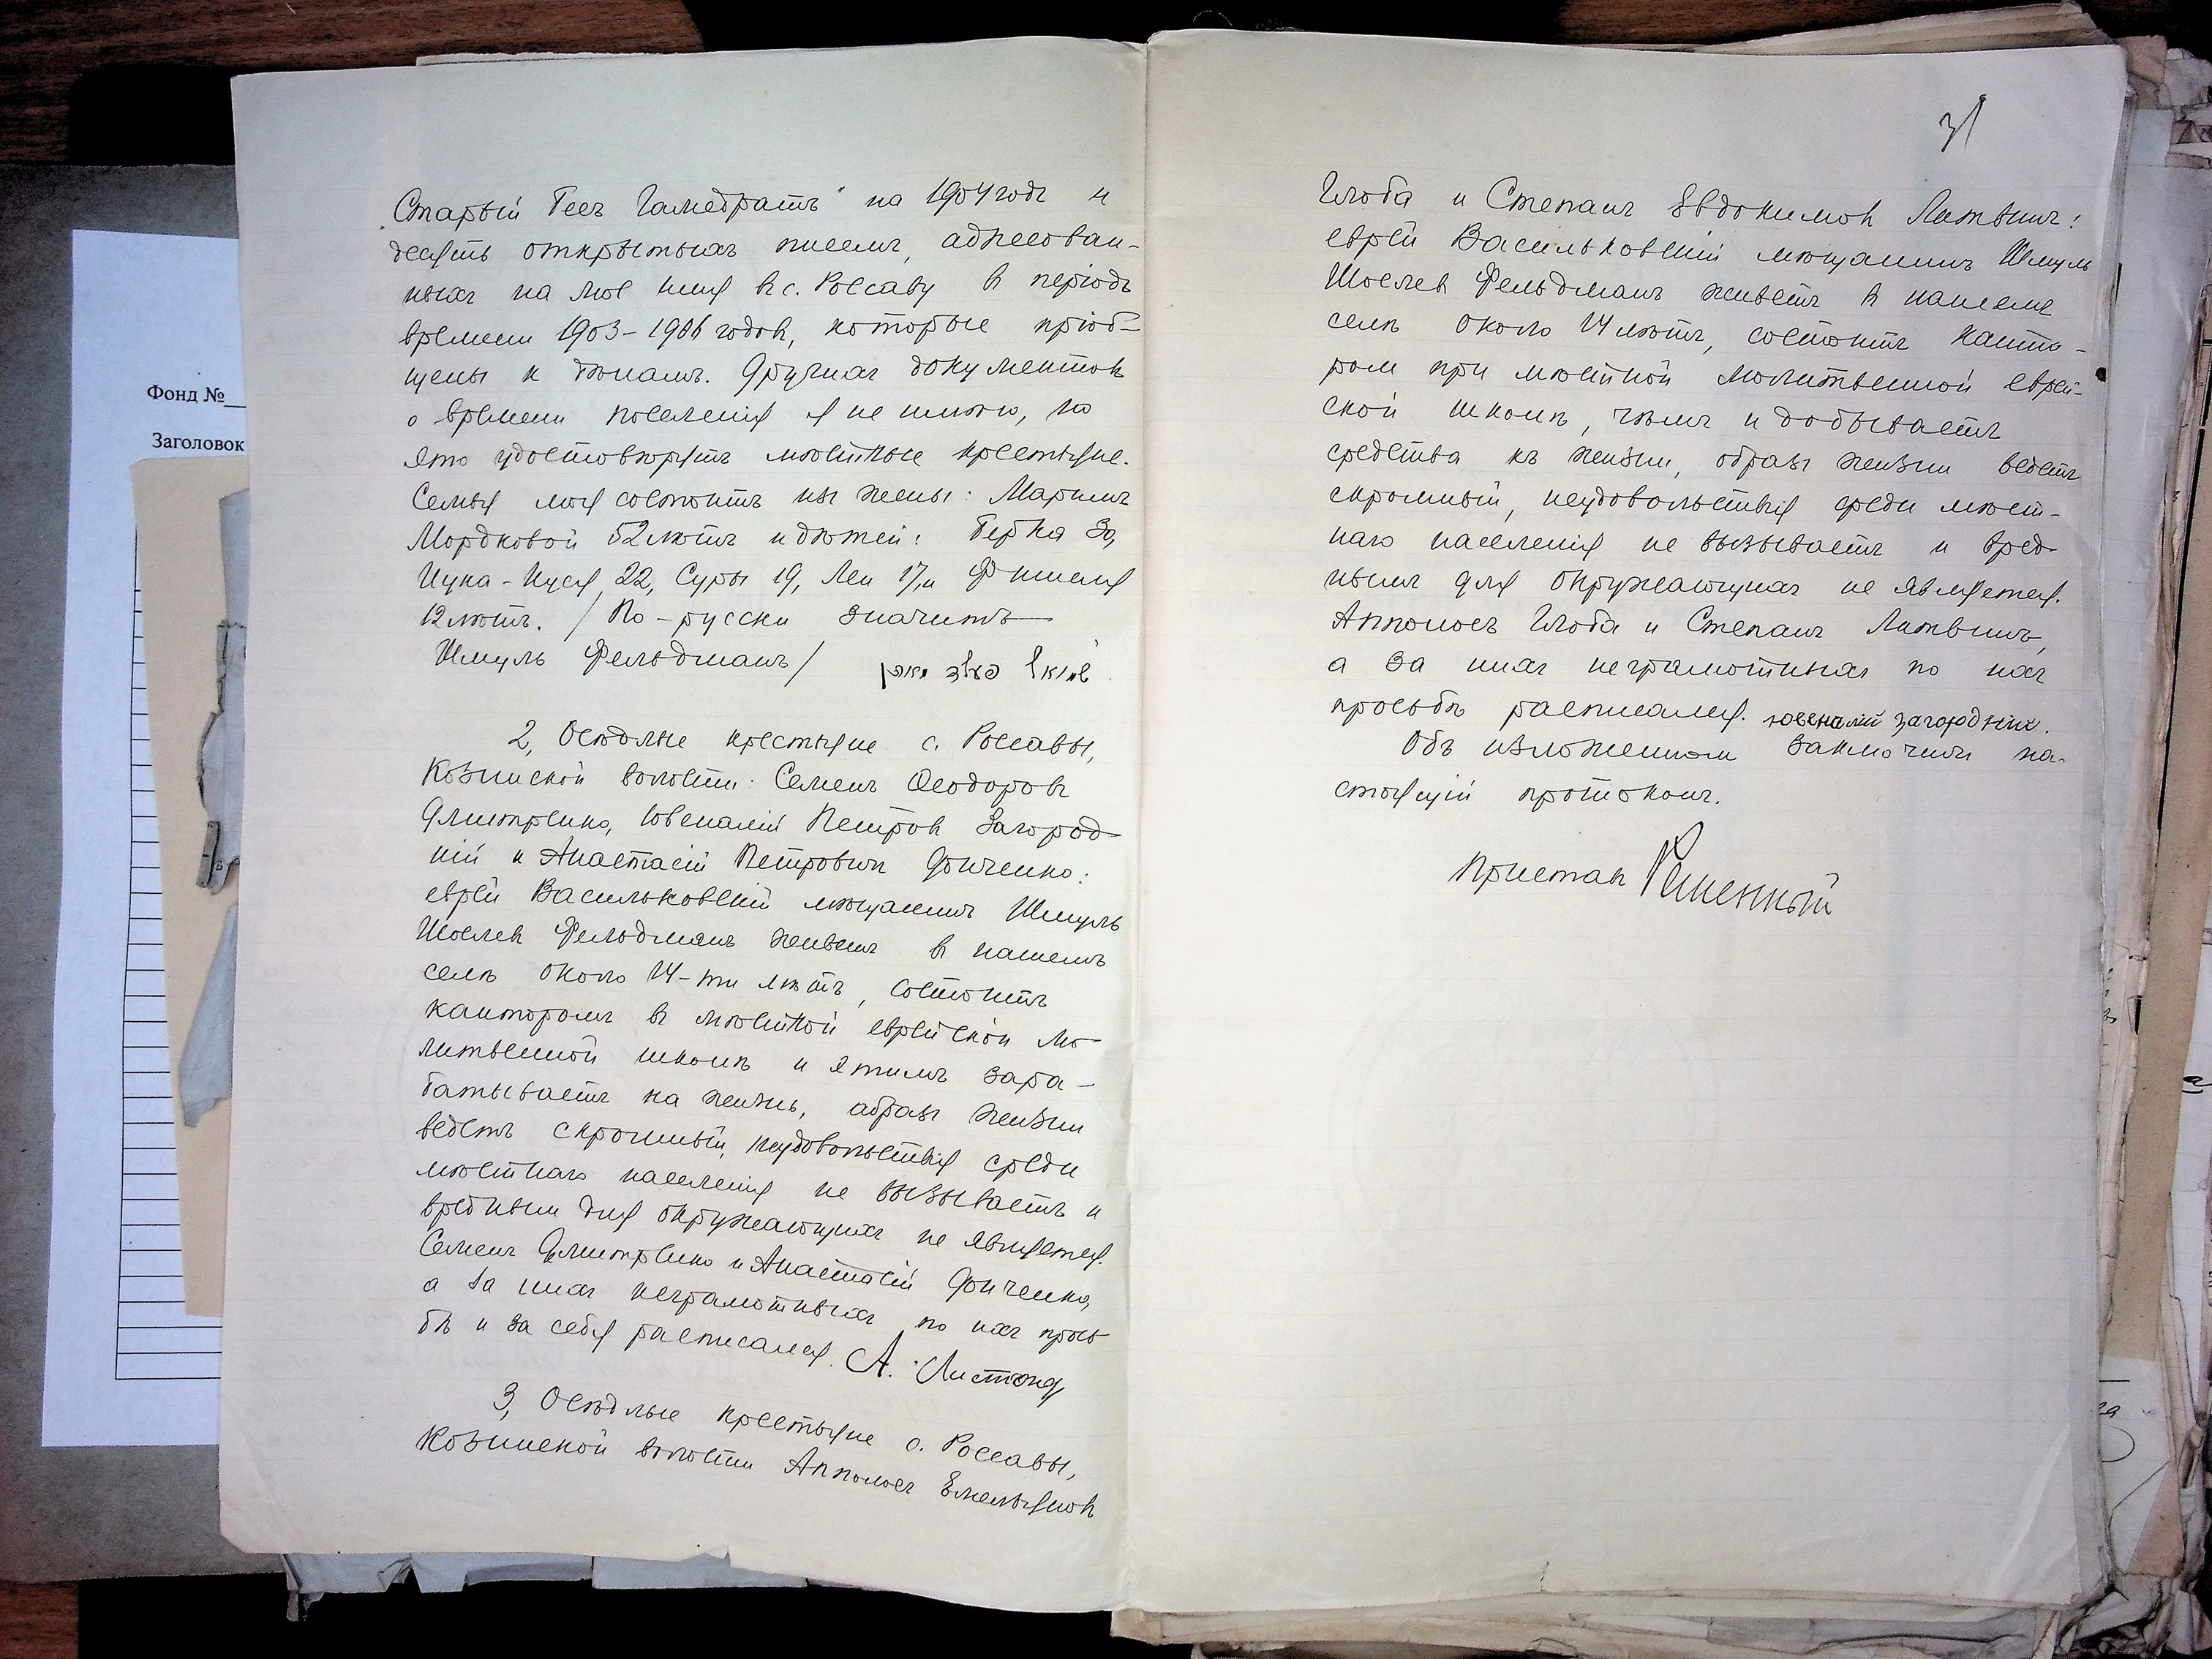 Фонд №
Заголовок
Старый Бесъ Гамедрашъ" на 1904 годъ и
десять открытыхъ писемъ, адресован-
ныхъ на мое имя въ с. Россаву въ періодъ
времени 1903-1906 годовъ, которые пріоб-
щены къ дѣламъ. Другихъ документовъ
о времени поселенія я не имѣю, но
это удостовѣрятъ мѣстные крестьяне.
Семья моя состоитъ изъ жены: Маріимъ
Мордковой 52 лѣтъ и дѣтей: Берка 30,
22, Суры 19, Леи 17, и Фишеля
12 лѣтъ. / По-русски значитъ
Шмуль Фельдманъ/
2, Осѣдлые крестьяне с. Россавы,
Козинской волости: Семенъ Ѳеодоровъ
Дмитренко, Ювеналій Петровъ Загород-
ній и Анастасій Петровичъ Донченко:
еврей Васильковскій мѣщанинъ Шмуль
Шоелевъ Фельдманъ живетъ въ нашемъ
селѣ около 14-ти лѣтъ, состоитъ
канторомъ въ мѣстной еврейской мо-
литвенной школѣ и этимъ зара-
батываетъ на жизнь, образъ жизни
ведетъ скромный, неудовольствія среди
мѣстнаго населенія не вызываетъ и
вреднымъ для окружающихъ не является.
Семенъ Дмитренко и Анастасій Донченко,
а за нихъ неграмотныхъ по ихъ прось-
бѣ и за себя расписался. А.
3, Осѣдлые крестьяне с. Россавы,
Козинской волости Апполосъ Емельяновъ
31
Глоба и Степанъ Евдокимовъ Литвинъ:
еврей Васильковскій мѣщанинъ Шмуль
Шоелевъ Фельдманъ живетъ въ нашемъ
селѣ около 14 лѣтъ, состоитъ канто-
ромъ при мѣстной молитвенной еврей-
ской школѣ, чѣмъ и добываетъ
средства къ жизни, образъ жизни ведетъ
скромный, неудовольствія среди мѣст-
наго населенія не вызываетъ и вред-
нымъ для окружающихъ не является.
Апполосъ Глоба и Степанъ Литвинъ,
а за нихъ неграмотныхъ по ихъ
просьбѣ расписался. Ювеналий Загородних.
Объ изложенномъ заключилъ на-
стоящій протоколъ.
Приставъ